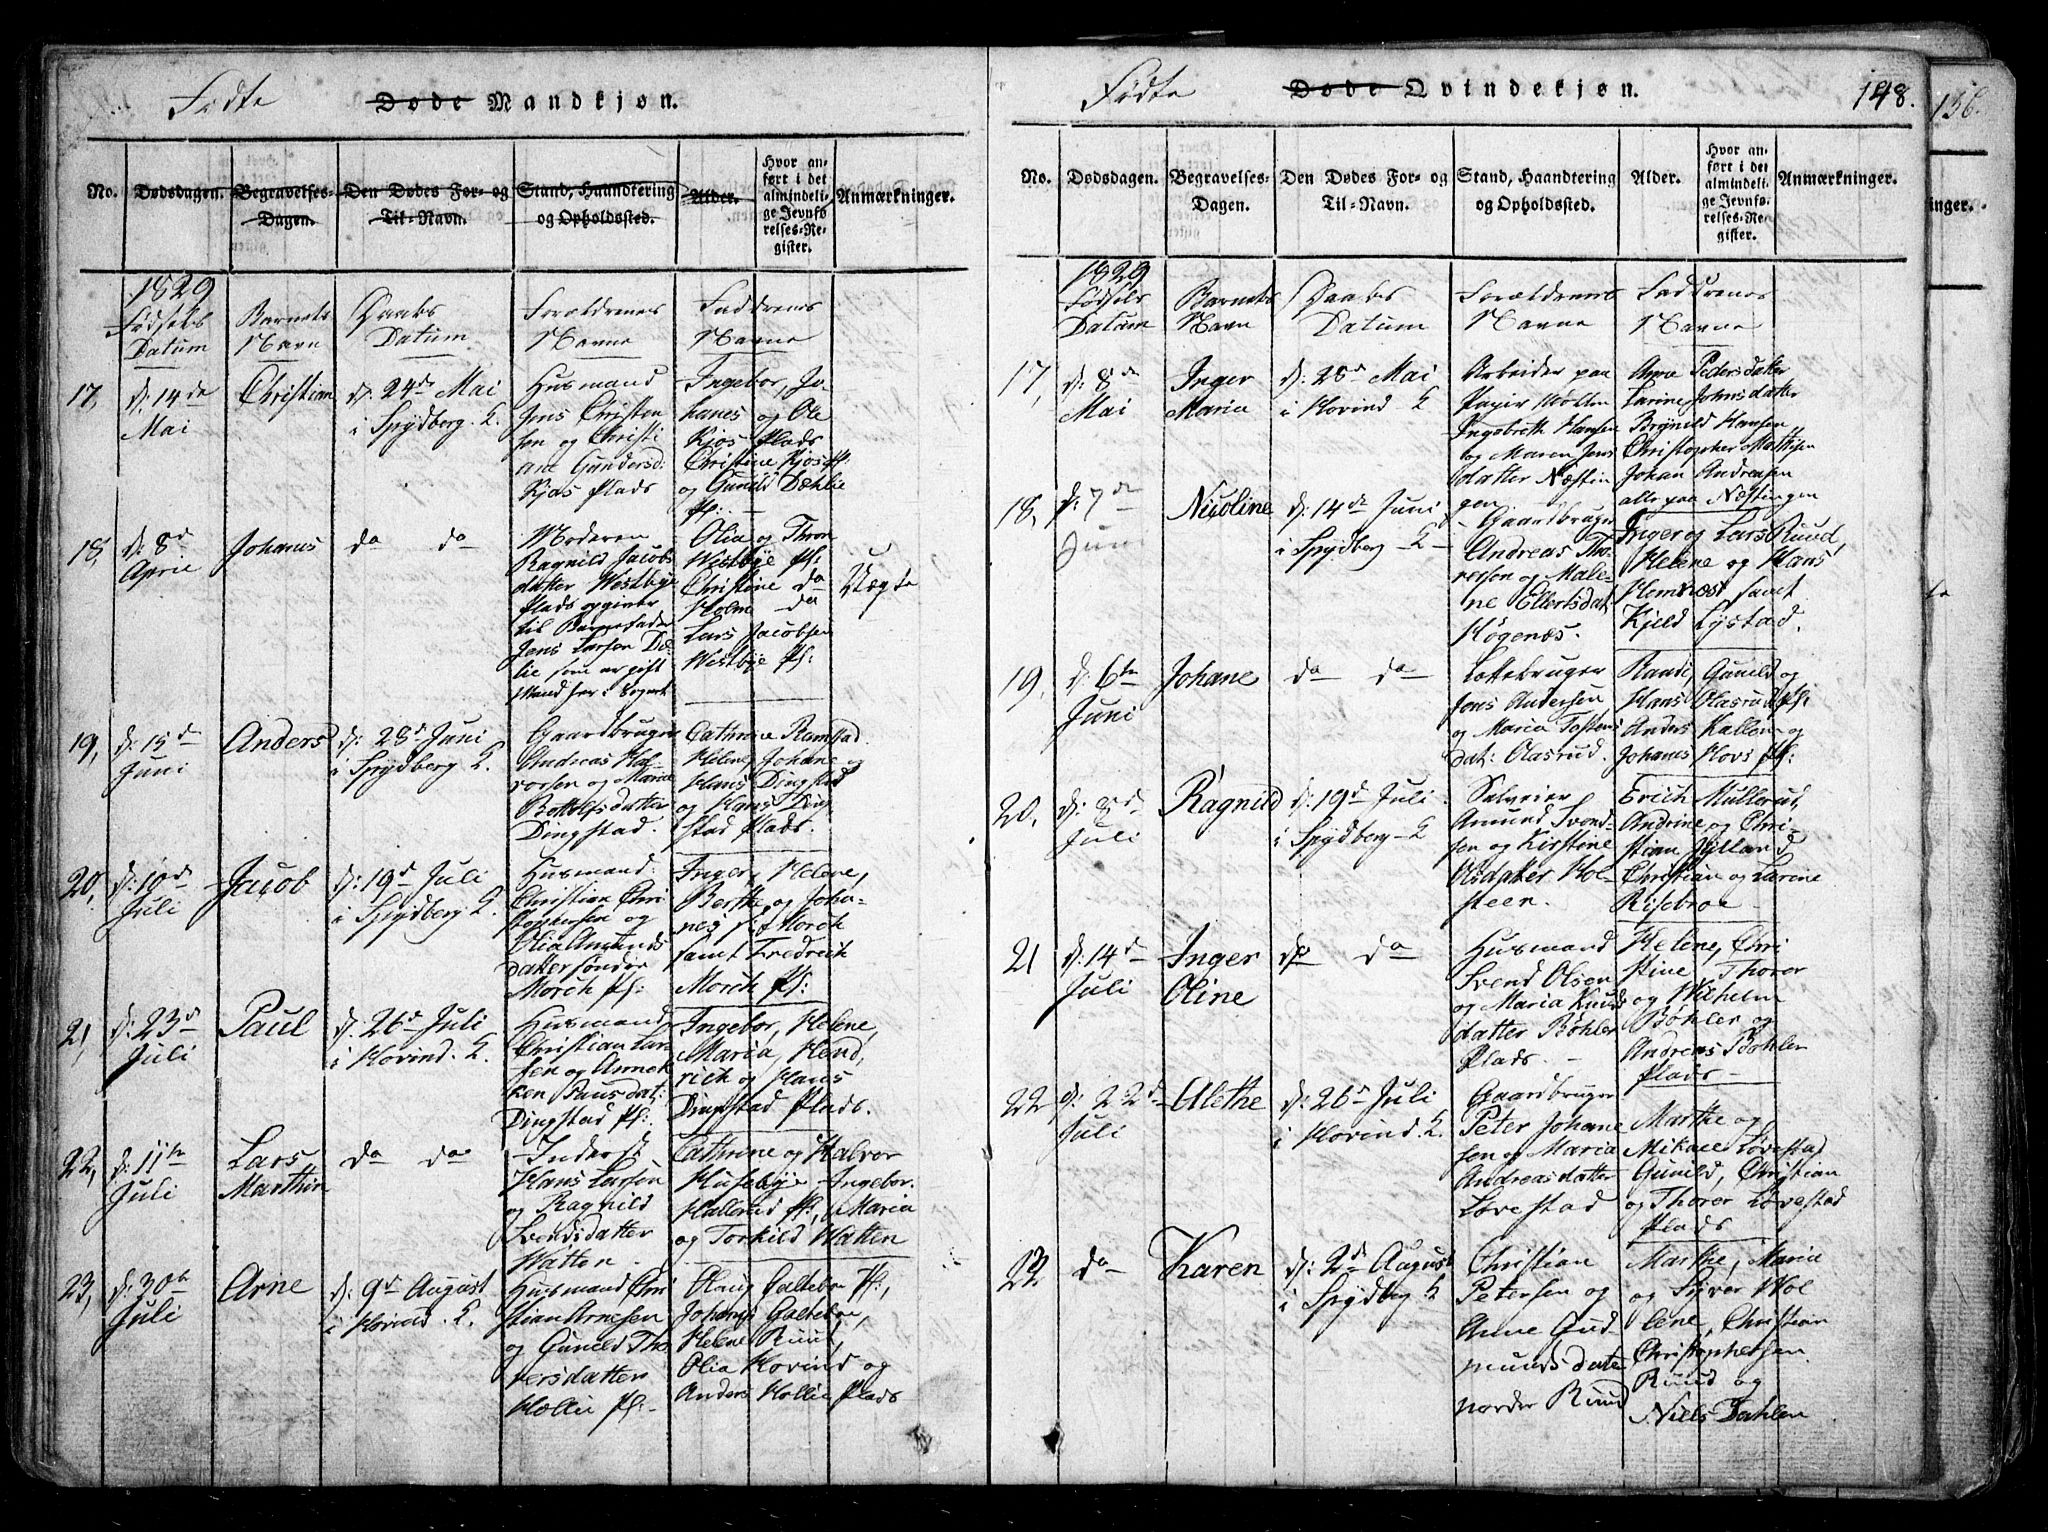 Fødte Døde Mandkjøn.
No.
Dødsdagen.
Begravelses-
Dagen.
Den Dødes For- og
Til-Navn.
Stand, Haandtering
og Opholdssted.
Alder.
Hvor an-
ført i det
almindeli-
ge Jevnfø-
relses-Re-
gister.
Anmærkninger.
1829
Fødsels
Datum
Barnets
Navn
Daabs
Datum
Forældrenes
Navne
Faddrenes
Navne
17,
d: 14de
Mai
Christian
d: 24de Mai
i Spydberg K.
Husmand
Jens Christen
sen og Christi
ane Gundersd:
Kjos Plads
Ingebor, Jo-
hanes og Ole
Kjos Plads
Christine Kjos Pl:
og Gunild Dæhlie
Pl:
18,
d: 8d
April
Johanes
do do
Moderen
Ragnild Jacobs
datter Westbye
Plads opgiver
til Barnefader
Jens Larsen Dæ-
lie som er gift
Mand her i Sognet
Olia og Thron
Westbye Pl:
Christine do
Holm do
Lars Jacobsen
Westbye Pl:
Uægte
19,
d: 15d
Juni
Anders
d: 28d Juni
i Spydberg K.
Gaardbruger
Andreas Hal-
vorsen og Maria
Bottolfsdatter
Dingstad.
Cathrine Ramstad.
Helene, Johane og
Hans Dingstad
og Hans Ding
stad Plads.
20,
d: 10d
Juli
Jacob
d: 19d Juli
i Spydberg K.
Husmand
Christian Chri
stophersen og
Olia Amunds
datter Søndre
Morch Pl:
Inger, Helene,
Berthe og Joha-
nes Morch
samt Fredrich
Morch Pl:
21,
d: 23d
Juli
Paul
d: 26d Juli
i Hovind K.
Husmand
Christian Lar
sen og Anne
Dingstad Pl:
Ingebor, Helene,
Maria, Hend,
rich og Hans
Dingstad Plads.
22,
d: 11te
Juli
Lars
Marthin
do do
Inderst
Hans Larsen
og Ragnild
Svendsdatter
Watten.
Cathrine og Halvor
Husebye Ingebor.
Hallerud Pl:, Maria
og Torkild Watten
23,
d: 30te
Juli
Arne
d: 9d August
i Hovind K.
Husmand Chri
stian Arnesen
og Gunild Tho
versdatter
Hollie Pl:
Olaug Galtebøe Pl:,
Johanes Galtebøe,
Helene Ruud,
Olia Hovind og
Anders Hollie Plads
Fødte Døde Qvindekjøn.
148.
No.
Dødsdagen.
Begravelses-
Dagen.
Den Dødes For- og
Til-Navn.
Stand, Haandtering
og Opholdssted.
Alder.
Hvor an-
ført i det
almindeli-
ge Jevnfø-
relses-Re-
gister.
Anmærkninger.
1829
Fødsels
Datum
Barnets
Navn
Daabs
Datum
Forældrenes
Navne
Faddrenes
Navne
17,
d: 8de
Mai
Inger
Maria
d: 28d Mai
i Hovind K
Arbeider paa
Papir Møllen
Ingebreth Hansen
og Maren Jens
datter Næstin
gen
Anne Pedersdatter
Karine Johnsdatter
Brynild Hansen
Christopher Mathisen
Johan Andreasen
alle paa Næstingen
18,
d: 7de
Juni
Nicoline
d: 14de Juni
i Spydberg K
Gaardbruger
Andreas Tho-
resen og Male-
ne Ellertsdat:
Høgenæs.
Inger og Lars Ruud,
Helene og Hans
Hemnæs samt
Kjeld Lystad.
19,
d: 6te
Juni
Johane
do do
Lottebruger
Jens Andersen
og Maria Tostens
dat: Olasrud.
Randi Gunild og
Hans Olasrud Pl:
Anders Kallen og
Johanes Hovs Pl:
20,
d: 2d
Juli
Ragnild
d: 19d Juli
i Spydberg K
Selveier
Amund Svend-
sen og Kirstine
Olsdatter Hol-
steen.
Erich Mullerud,
Andrine og Chri-
stian Jylland
Christian og Karine
Risebroe
21
d: 14d
Juli
Inger
Oline
do do
Husmand
Svend Olsen
og Maria Knuds
datter Bøhler
Plads.
Helene, Chri
stine, Thorer
og Wilhelm
Bøhler og
Andreas Bøhler
Plads
22
d: 22d
Juli
Alethe
d: 26d Juli
i Hovind K.
Gaardbruger
Peter Johane
sen og Maria
Andreasdatter
Løvestad
Marthe og
Mikael Løvestad
Gunild, Christian
og Thorer Løvestad
Plads
23
do
Karen
d: 2d August
i Spydberg K
Christian
Petersen og
Anne Gud
munds datter
norder Ruud
Marthe, Maria
og Syver Wol
lene, Christian
Christophersen
Ruud og
Niels Dahlen
156.
inger.